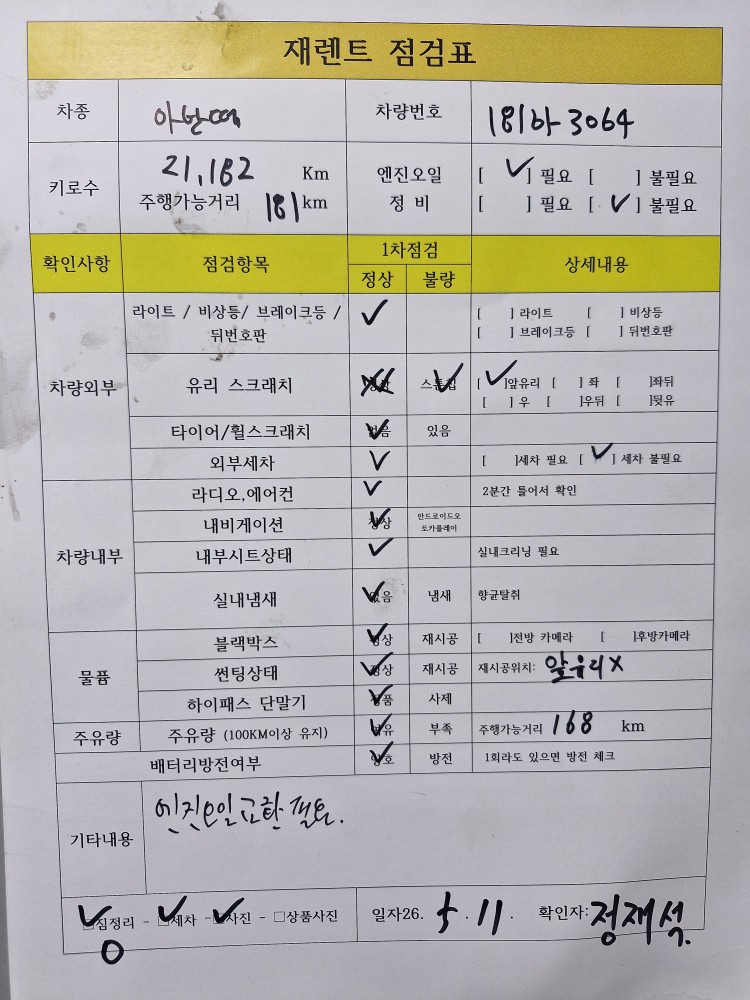 재렌트 점검표
차종 아반떼 차량번호 181하 3064
키로수 21,182 Km 엔진오일 [ ✓ ] 필요 [ ] 불필요
주행가능거리 181 km 정 비 [ ] 필요 [ ✓ ] 불필요
확인사항 점검항목 1차점검 상세내용
정상 불량
차량외부 라이트 / 비상등/ 브레이크등 / ✓ [ ] 라이트 [ ] 비상등
뒤번호판 [ ] 브레이크등 [ ] 뒤번호판
유리 스크래치 ✓ [ ✓ ]앞유리 [ ] 좌 [ ]좌뒤
[ ] 우 [ ]우뒤 [ ]뒷유
타이어/휠스크래치 ✓ 있음
외부세차 ✓ [ ]세차 필요 [ ✓ ] 세차 불필요
차량내부 라디오,에어컨 ✓ 2분간 틀어서 확인
내비게이션 ✓ 정상 안드로이드오
토카플레이
내부시트상태 ✓ 실내크리닝 필요
실내냄새 ✓ 없음 냄새 향균탈취
물품 블랙박스 ✓ 정상 재시공 [ ]전방 카메라 [ ]후방카메라
썬팅상태 ✓ 정상 재시공 재시공위치: 앞유리X
하이패스 단말기 ✓ 사제
주유량 주유량 (100KM이상 유지) ✓ 부족 주행가능거리 168 km
배터리방전여부 ✓ 양호 방전 1회라도 있으면 방전 체크
기타내용 엔진오일교환필요.
✓ 짐정리 - ✓ 세차 - ✓ 사진 - □상품사진 일자26. 5 . 11 . 확인자: 정재석